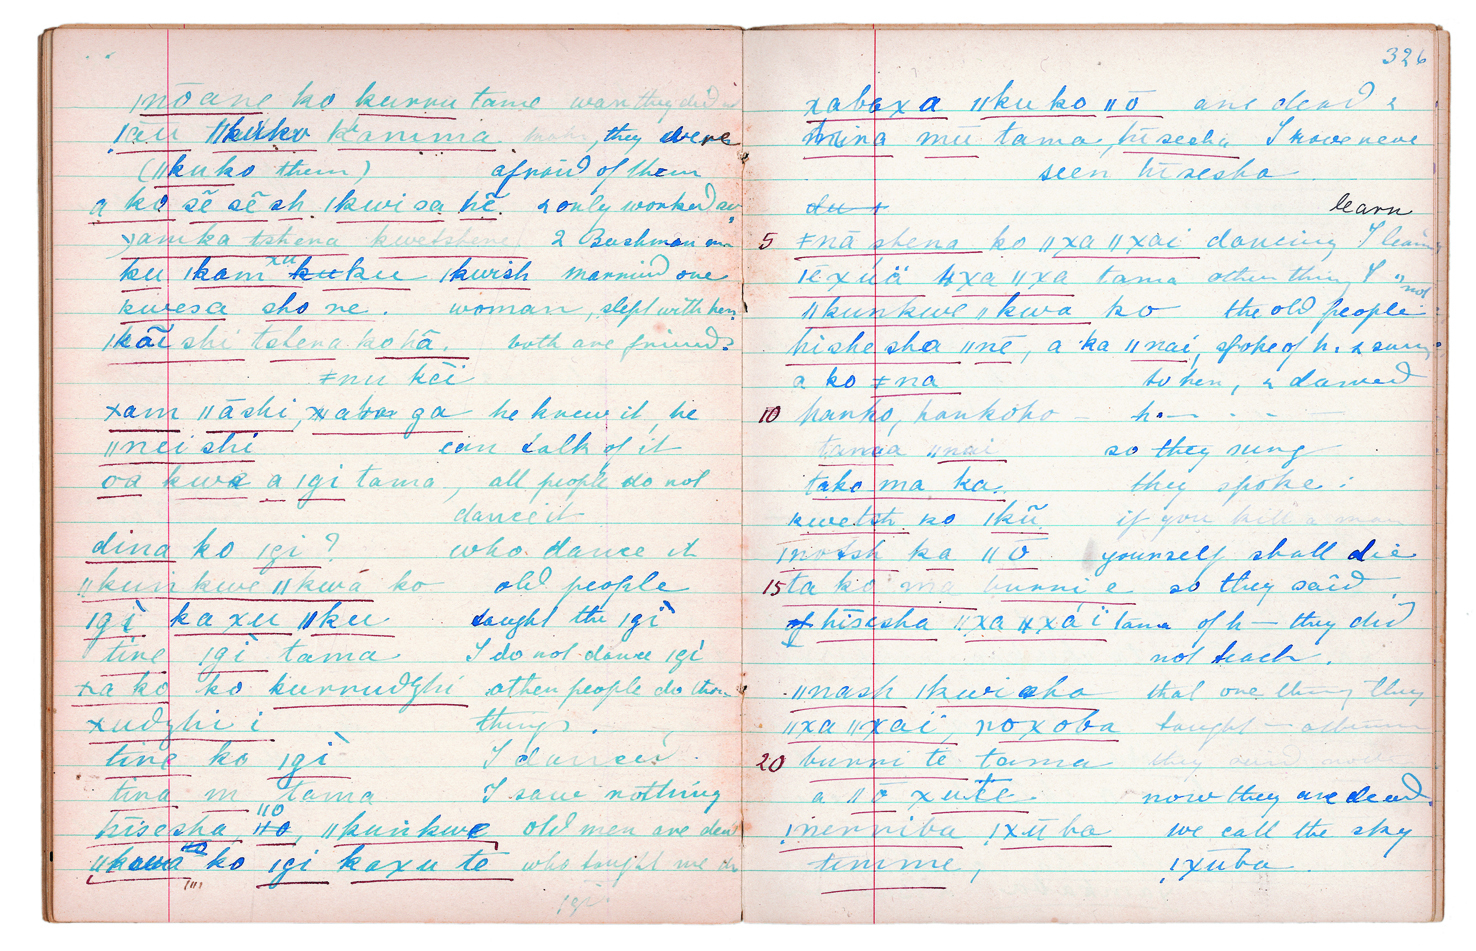 ǀnōane ko kurru tame war they did
ǀāu ǁkuko kamma they were
(ǁkuko them) afraid of them
a ko sē sē sh ǀkwi sa hē & only worked so
ǀamka tshena kwetshene 2 Bushman
ku ǀkam xu ku ku ǀkwish married one
kwesa sho ne. woman, slept with her
ǀkāi shi tshena ko hā. both are friends
ǂnu kēi
xam ǁāshi, ga he knew it, he
ǁnei shi can talk of it
oa kwa a ǀgi tama, all people do not
dance it
dina ko ǀgi? who dance it
ǁkunkwe ǁkwá ko old people
ǀgì kaxu ǁku taught the ǀgì
tine ǀgì tama I do not dance ǀgì
xa ko ko kurrudghi other people do them
xudghi i things.
tine ko ǀgì I danced
tina m tama I saw nothing
hīsesha, ǁo, ǁkunkwe old men are dead
ko ǀgi kaxu te who taught me
ǀgì
326
xabaxa ǁku ko ǁō are dead &
mina mū tama, hīsesha I have never
seen hīsesha
learn
5 ǂnā shena ko ǁxa ǁxai dancing I learn
ǀē xúä ǂxa ǁxa tama other thing I not
ǁkunkwe ǁkwa ko the old people
hishesha ǁnē, a ka ǁnai, spoke of h. & sung
a ko ǂna to her, & danced
10 hanko, hankoho - h. - - -
tamaa ǁnai so they sung
tako ma ka. they spoke:
kwetsh ko ǀkū if you kill a man
ǀnotsh ka ǁō yourself shall die
15 ta ko ma burri e so they said,
hīsesha ǁxa ǂxáï tama of h— they did
not teach.
ǁnash ǀkwi sha that one thing they
ǁxa ǁxaï, noxoba taught —
20 burri te tama they said
a ǁō xu te now they are dead.
ǃnerriba ǃxūba we call the sky
timme, ǃxūba